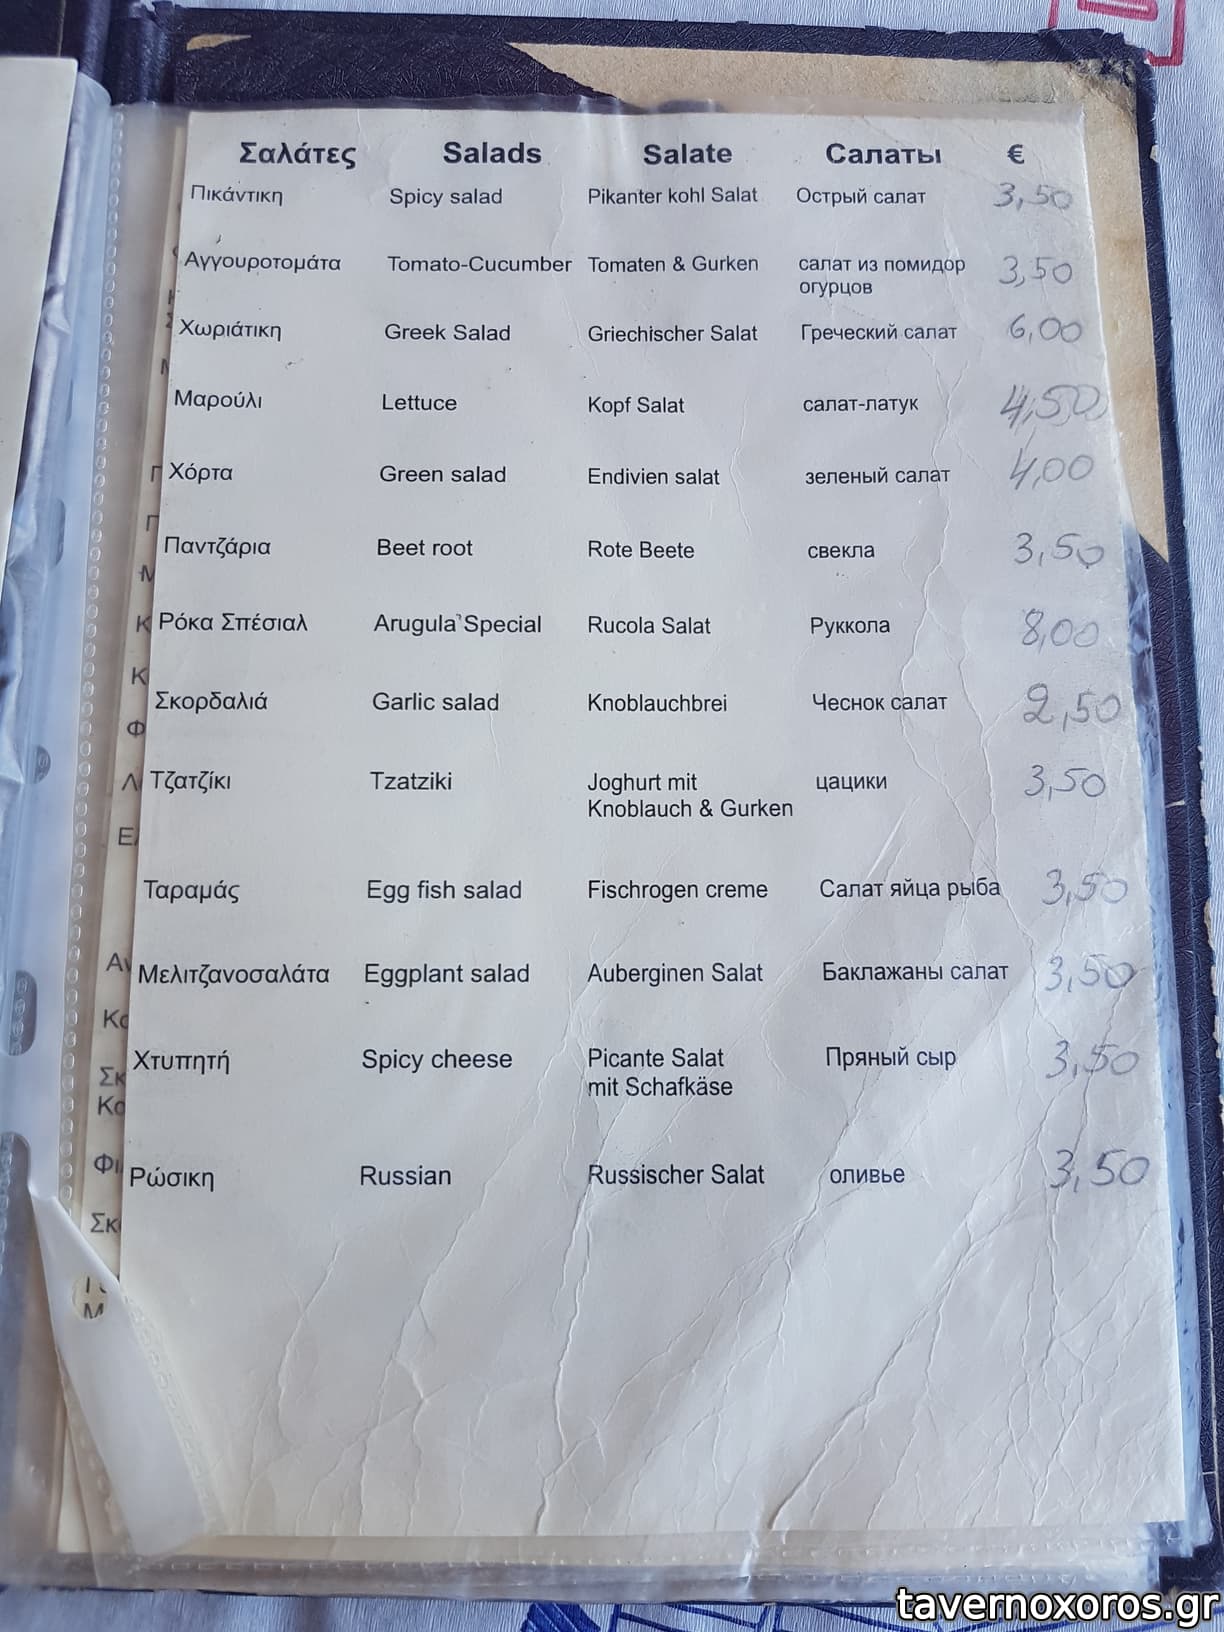 Σαλάτες Salads Salate Салаты €
Πικάντικη Spicy salad Pikanter kohl Salat Острый салат 3,50
Αγγουροτομάτα Tomato-Cucumber Tomaten & Gurken салат из помидор 3,50
огурцов
Χωριάτικη Greek Salad Griechischer Salat Греческий салат 6,00
Μαρούλι Lettuce Kopf Salat салат-латук 4,50
Χόρτα Green salad Endivien salat зеленый салат 4,00
Παντζάρια Beet root Rote Beete свекла 3,50
Ρόκα Σπέσιαλ Arugula Special Rucola Salat Руккола 8,00
Σκορδαλιά Garlic salad Knoblauchbrei Чеснок салат 2,50
Τζατζίκι Tzatziki Joghurt mit цацики 3,50
Knoblauch & Gurken
Ταραμάς Egg fish salad Fischrogen creme Салат яйца рыба 3,50
Μελιτζανοσαλάτα Eggplant salad Auberginen Salat Баклажаны салат 3,50
Χτυπητή Spicy cheese Picante Salat Пряный сыр 3,50
mit Schafkäse
Ρώσικη Russian Russischer Salat оливье 3,50
tavernoxoros.gr